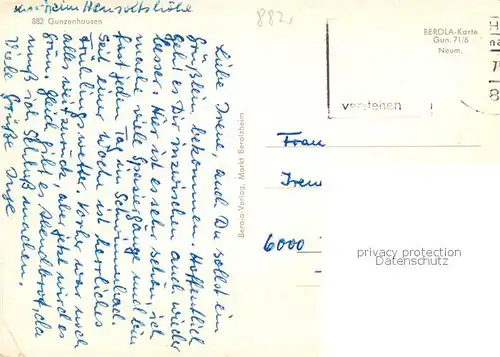 882 Gunzenhausen
Hensoltshöhe
882,
BEROLA-Karte
Gun. 71/6
Neum.
verstehen
Liebe Irene, auch Du sollst ein
Grüßlein bekommen. Hoffentlich
geht es Dir inzwischen auch wieder
besser. Hier ist es sehr schön, ich
mache viele Spaziergänge und bin
fast jeden Tag im Schwimmbad.
Seit einer Woche ist herrliches
Frühlingswetter. Vorher war noch
alles weiß, aber jetzt wird es
grün. Gleich gibt es Abendbrot, da
muß ich Schluß machen.
Viele Grüße Inge
Berola-Verlag, Markt Berolzheim
Frau
Iren
6000
privacy protection
Datenschutz